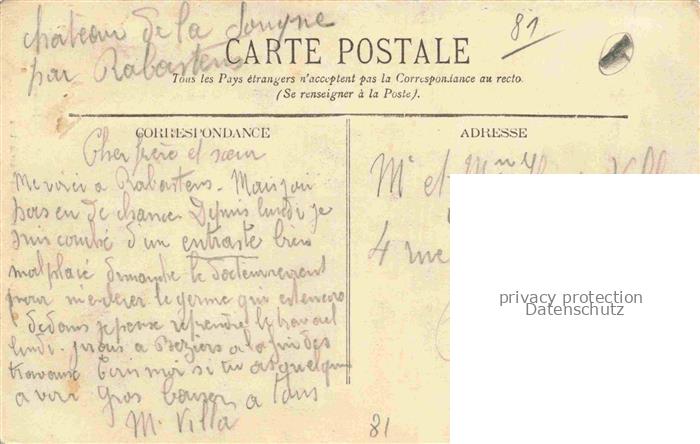 château de la Sougne
par Rabastens
81
CARTE POSTALE
Tous les Pays étrangers n'acceptent pas la Correspondance au recto.
(Se renseigner à la Poste).
CORRESPONDANCE
ADRESSE
Cher frère et sœur
Me voici a Rabastens. Mais jai
pas eu de chance. Depuis lundi je
suis combé d'un entraste bien
mal placé dimanche le docteur vient
pour m'enlever le germe qui est encore
dedans je pense reprendre le travail
lundi. jirais a Béziers a la fin des
travaux Ecris moi si tu as quelque
a voir Gros baiser a tous
M. Villa
Mr et Mme
4 rue
privacy protection
Datenschutz
81